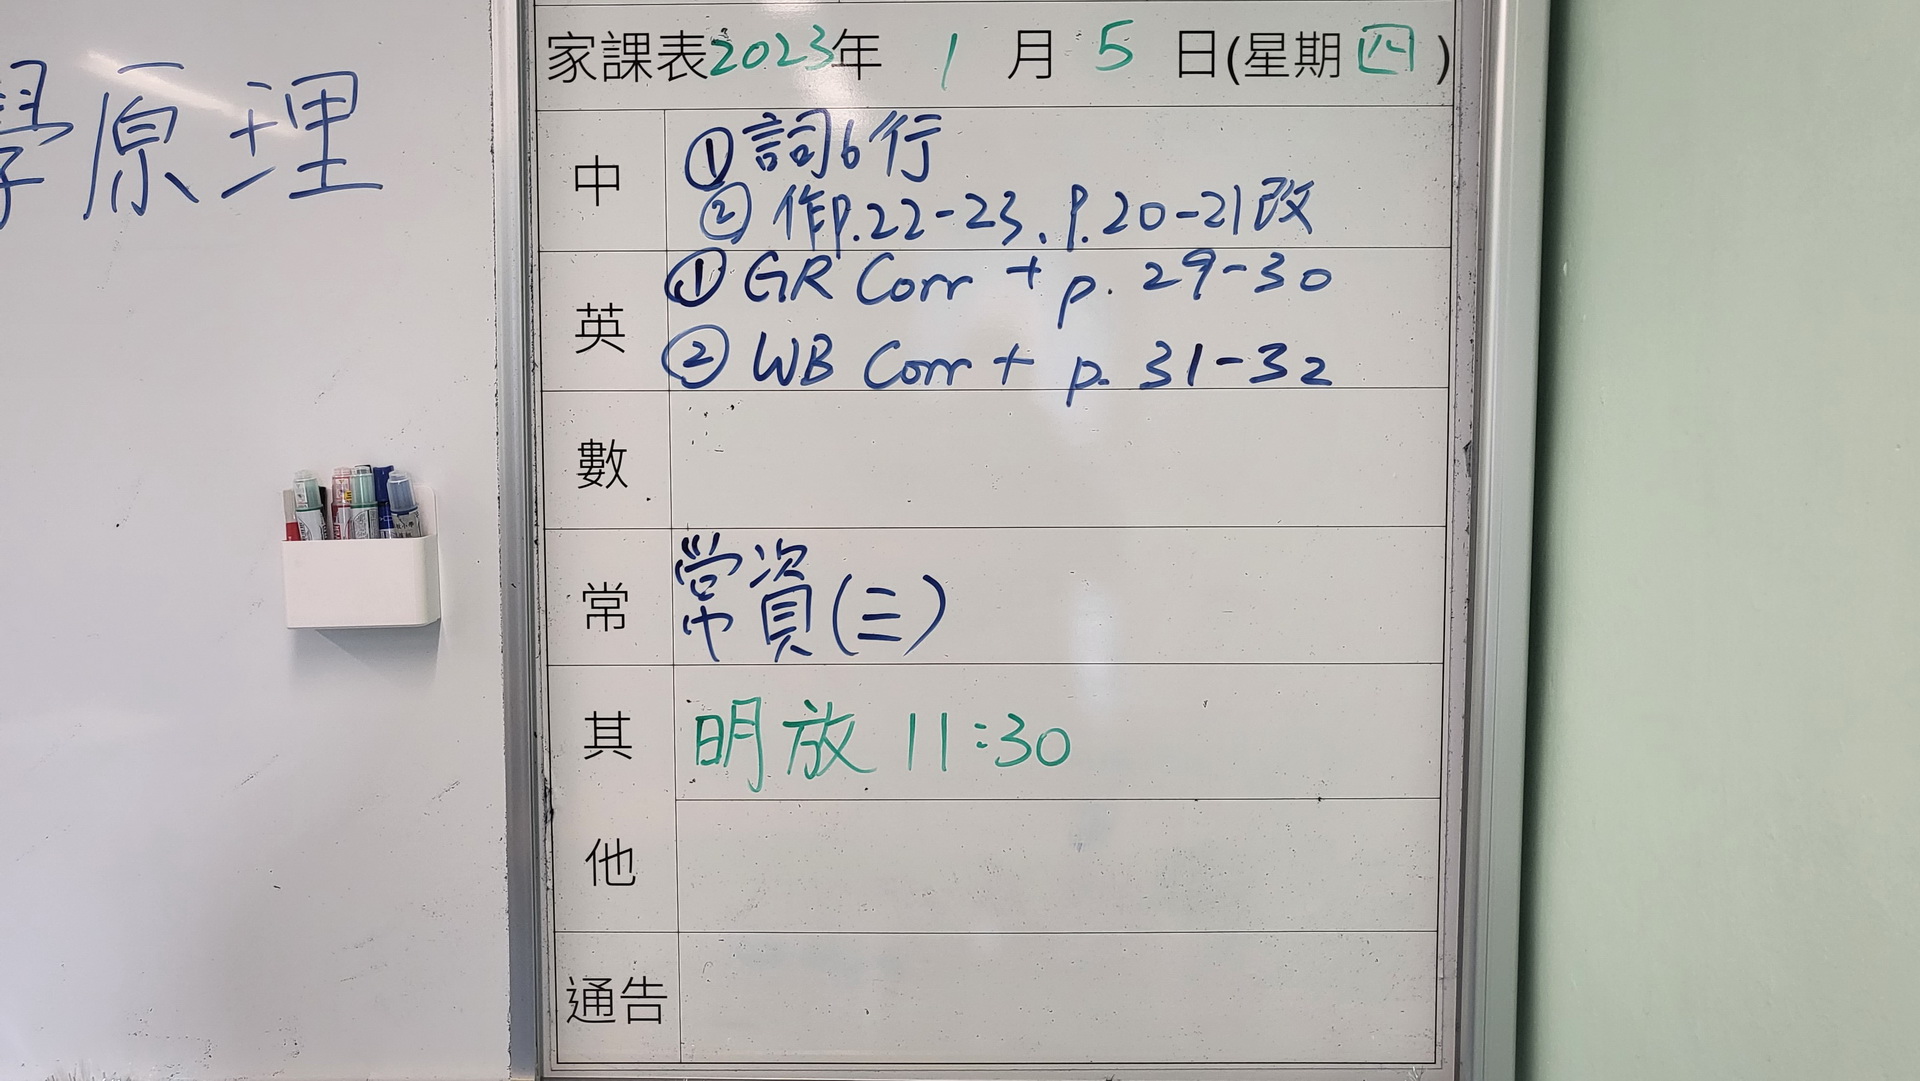 學原理
家課表2023年 1 月 5 日(星期四)
中
①詞6行
②作p.22-23、p.20-21改
英
①GR Corr + p. 29-30
②WB Corr + p. 31-32
數
常
常資(三)
其他
明放 11:30
通告